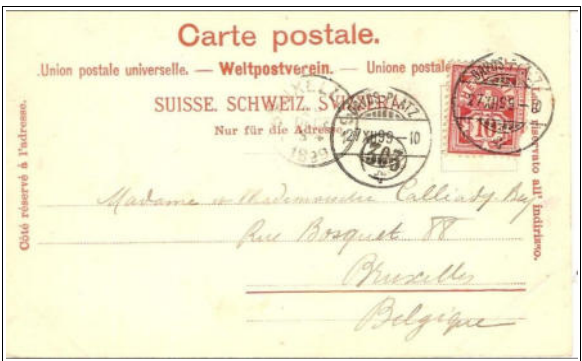 Carte postale.
Union postale universelle. — Weltpostverein. — Unione postale
SUISSE. SCHWEIZ.
Nur für die Adresse
Côté réservé à l'adresse.
Lato riservato all' indirizzo.
DAVOS-PLATZ
27 XII 99–10
DAVOS-PLATZ
27 XII 99
10
1899
Madame et Mademoiselle Calliady-Bey
Rue Bosquet 88
Bruxelles
Belgique